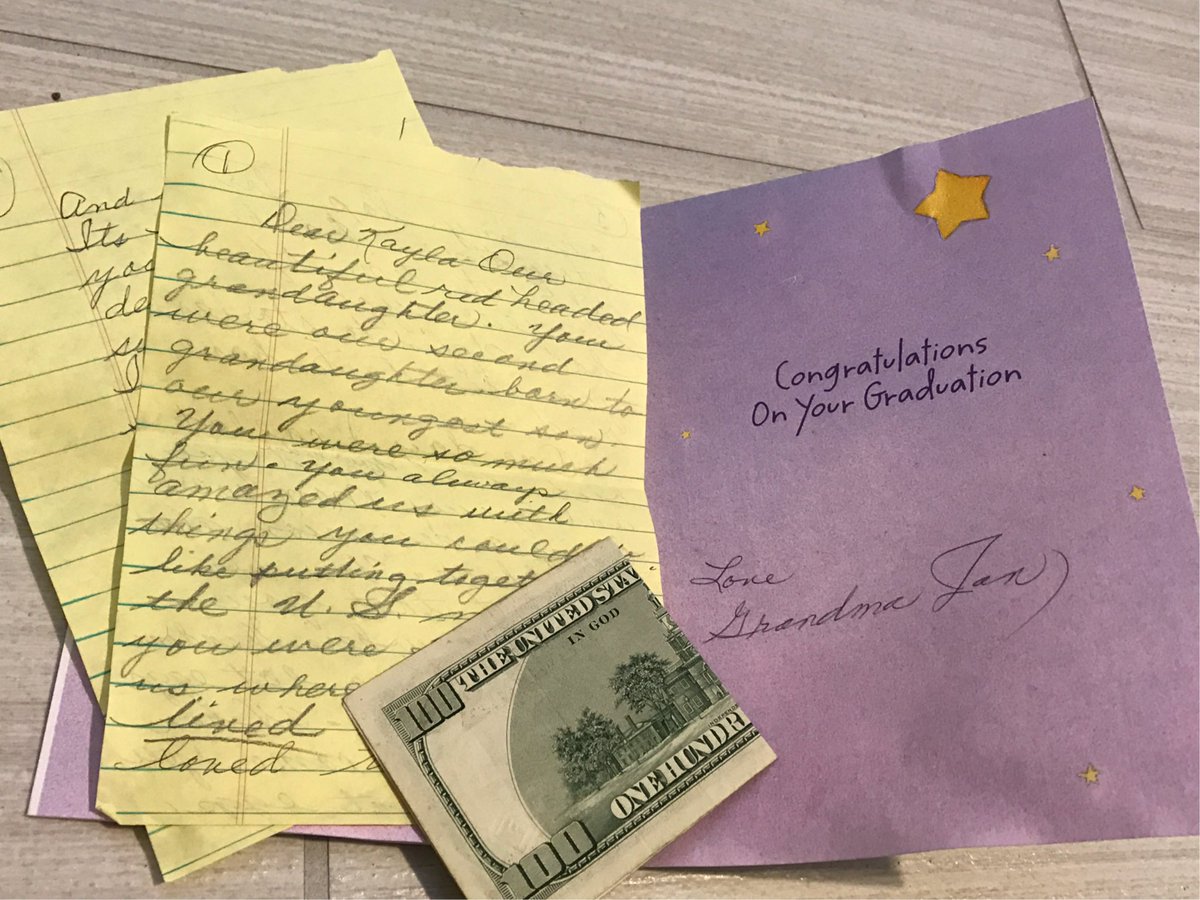 And
Its
you
①
Dear Kayla Our
beautiful red headed
grandaughter. You
were our second
grandaughter born to
our youngest son
You were so much
fun. You always
amazed us with
things you could
like putting
the U. S.
you were
us where
lived
loved
Congratulations
On Your Graduation
Love
Grandma Jan
100
THE UNITED STA
IN GOD
ONE HUNDR
100